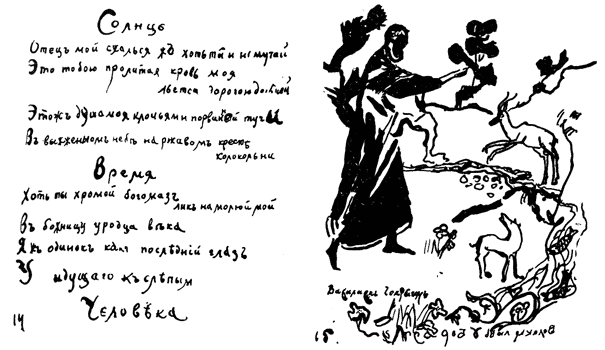 Солнце
Отецъ мой сжалься хоть ты и не мучай
Это тобою пролитая кровь моя
льется дорогою дольней
Этожъ душа моя клочьями порванной тучи
Въ выжженномъ небѣ на ржавомъ крестѣ
колокольни
Время
Хоть ты хромой богомазъ
ликъ намалюй мой
Въ божницу уродца вѣка
Я одинокъ какъ послѣдній глазъ
У идущаго къ слѣпымъ
Человѣка
14
15.